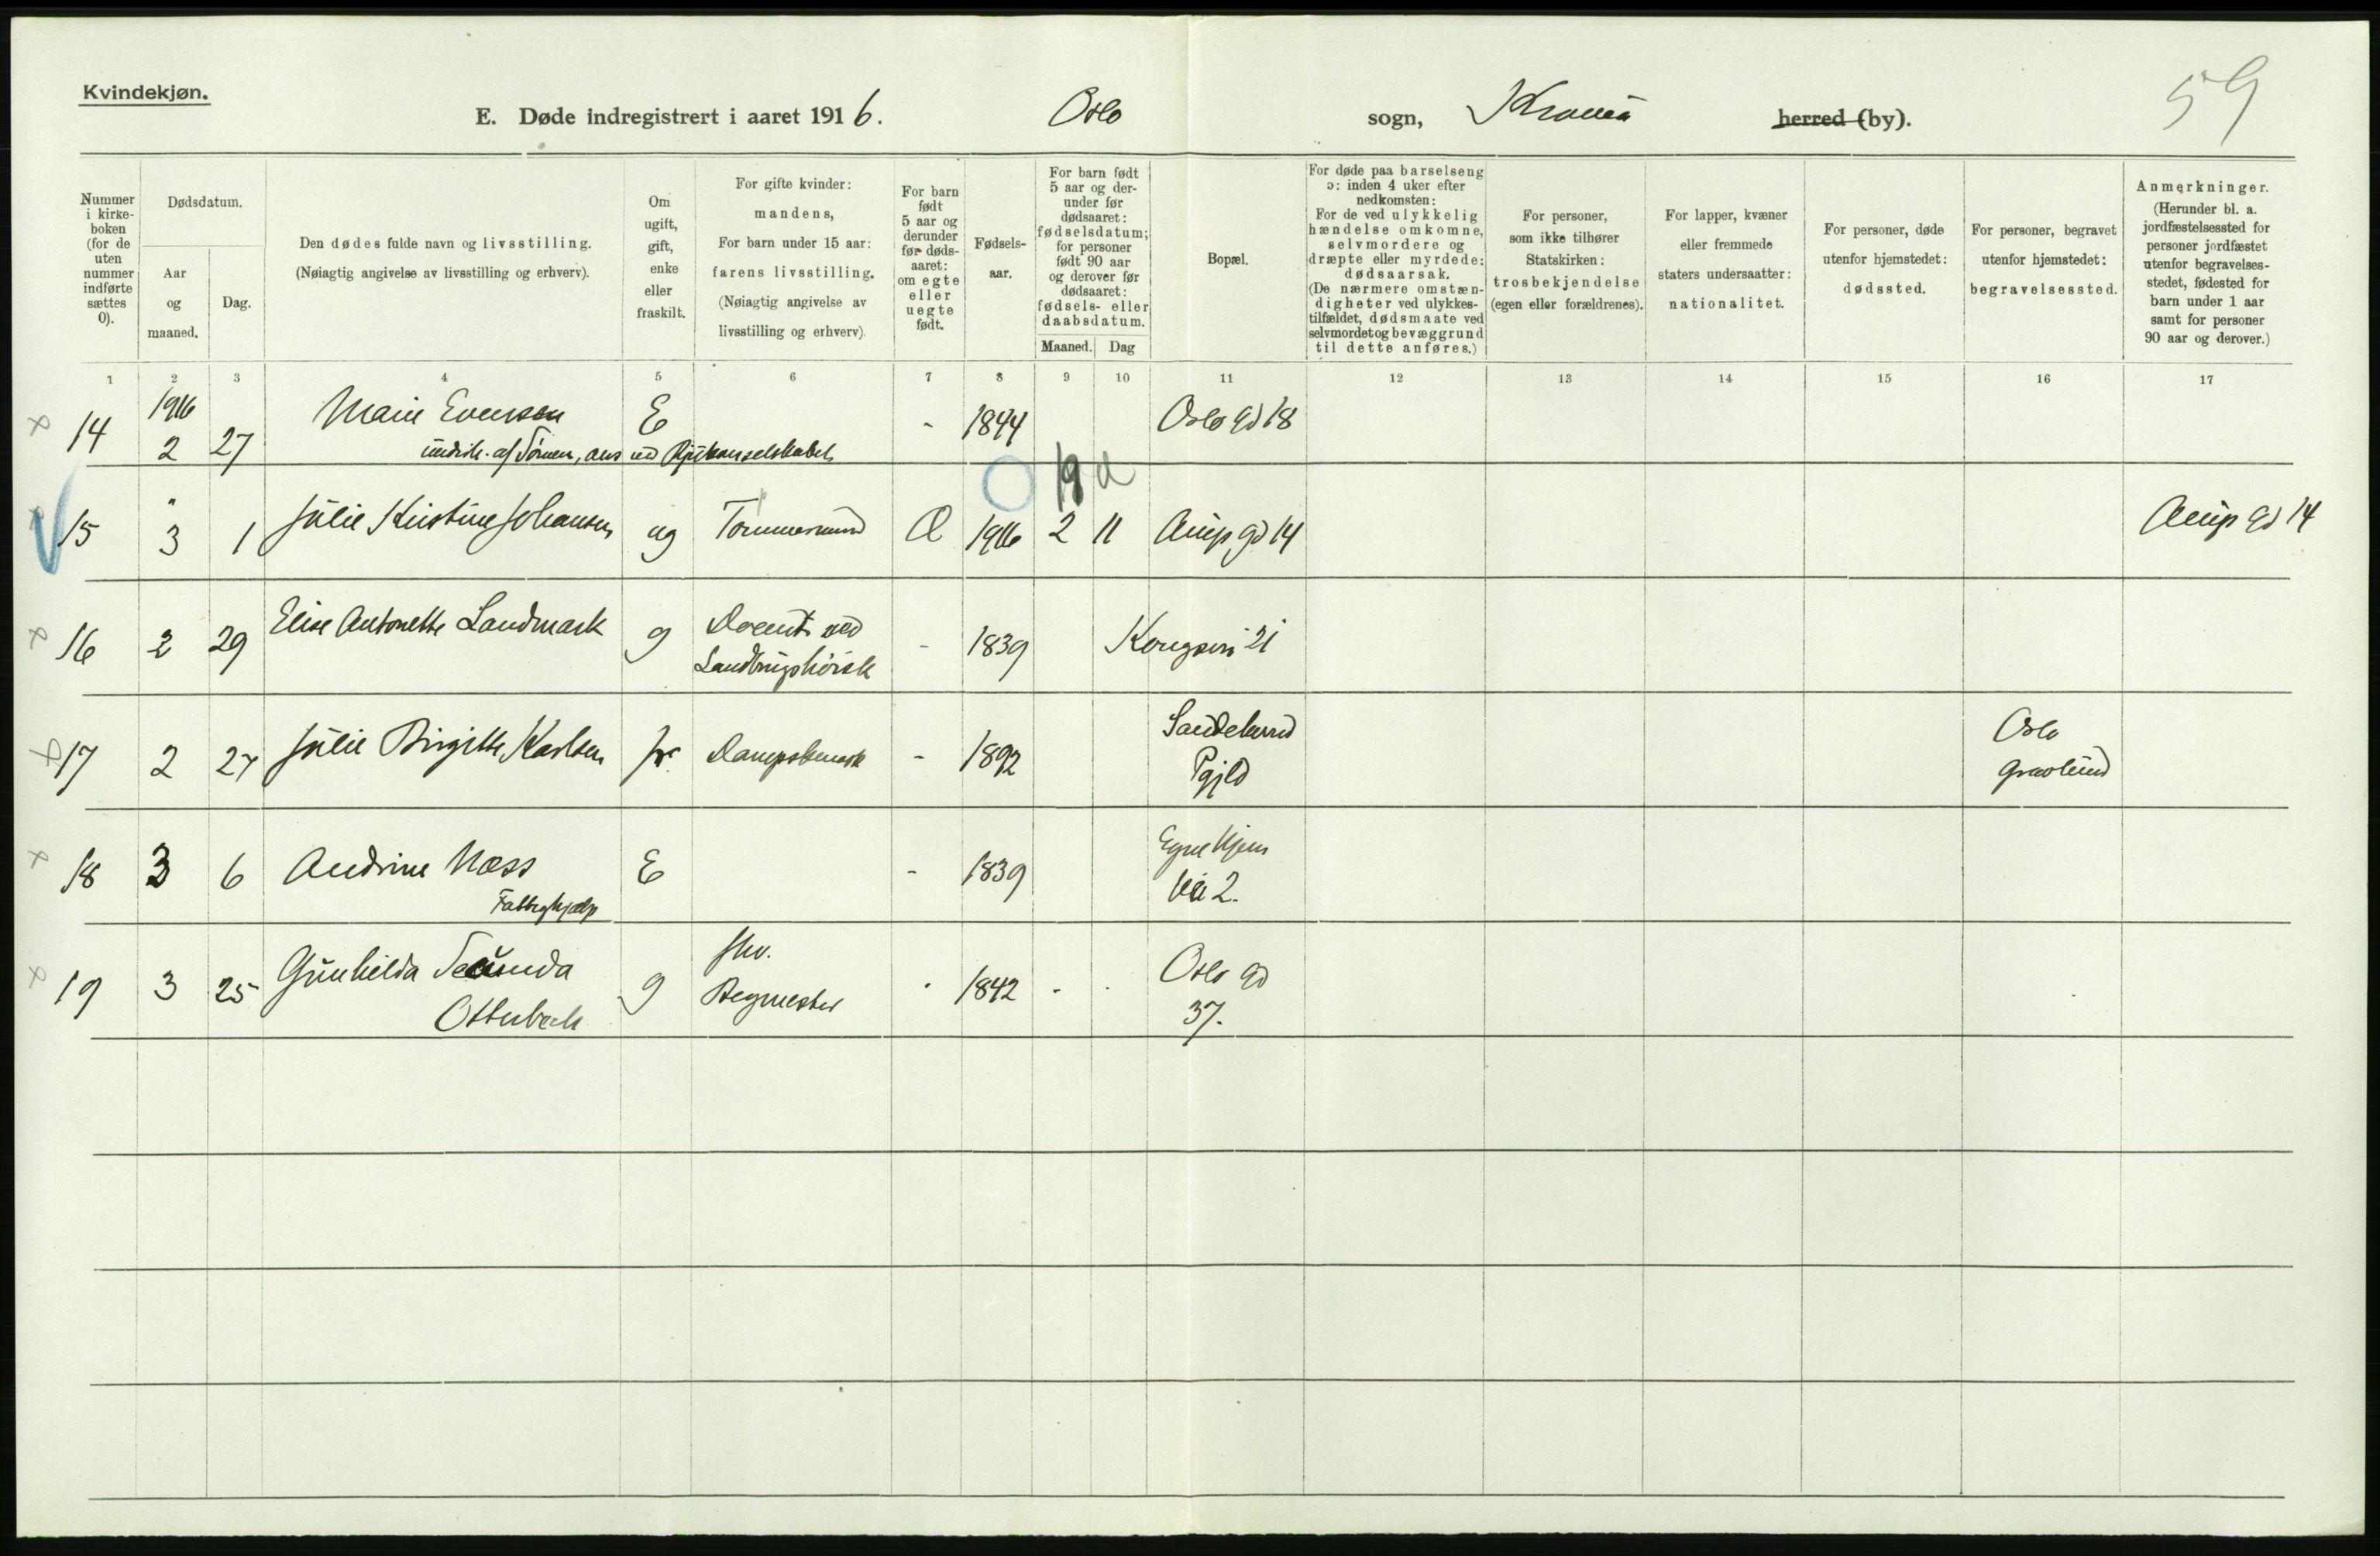 Kvindekjøn.
E. Døde indregistrert i aaret 1916. Oslo sogn, Kra herred (by). 59
Nummer i kirke-boken (for de uten nummer indførte sættes 0).
Dødsdatum.
Aar og maaned.
Dag.
Den dødes fulde navn og livsstilling.
(Nøiagtig angivelse av livsstilling og erhverv).
Om ugift, gift, enke eller fraskilt.
For gifte kvinder: mandens,
For barn under 15 aar: farens livsstilling.
(Nøiagtig angivelse av livsstilling og erhverv).
For barn født 5 aar og derunder før døds-aaret: om egte eller uegte født.
Fødsels-aar.
For barn født 5 aar og der-under før dødsaaret: fødselsdatum; for personer født 90 aar og derover før dødsaaret: fødsels- eller daabsdatum.
Maaned. Dag
Bopæl.
For døde paa barselseng ɔ: inden 4 uker efter nedkomsten:
For de ved ulykkelig hændelse omkomne, selvmordere og dræpte eller myrdede: dødsaarsak.
(De nærmere omstæn-digheter ved ulykkes-tilfældet, dødsmaate ved selvmordet og bevæggrund til dette anføres.)
For personer, som ikke tilhører Statskirken: trosbekjendelse (egen eller forældrenes).
For lapper, kvæner eller fremmede staters undersaatter: nationalitet.
For personer, døde utenfor hjemstedet: dødssted.
For personer, begravet utenfor hjemstedet: begravelsessted.
Anmerkninger.
(Herunder bl. a. jordfæstelsessted for personer jordfæstet utenfor begravelses-stedet, fødested for barn under 1 aar samt for personer 90 aar og derover.)
1 2 3 4 5 6 7 8 9 10 11 12 13 14 15 16 17
14 1916 2 27 Marie Evensen E - 1844 Oslo gd 18
af Sønnen, ans ved
19 d
15 " 3 1 Julie Kristine Johansen ug Tømmermand Æ 1916 2 11 Arups gd 14 Arups gd 14
16 2 29 Elise Antonette Landmark g Docent ved Landbrugshøisk - 1839 Kongsvei 21
17 2 27 Julie Birgitte Karlsen fr. - 1892 Pgjld Oslo Gravlund
18 3 6 Andrine Næss E - 1839 Egne Hjem Vei 2.
Fattighjælp
19 3 25 Gunhilda Secunda Otterbech g fhv. - 1842 - - Oslo gd 37.